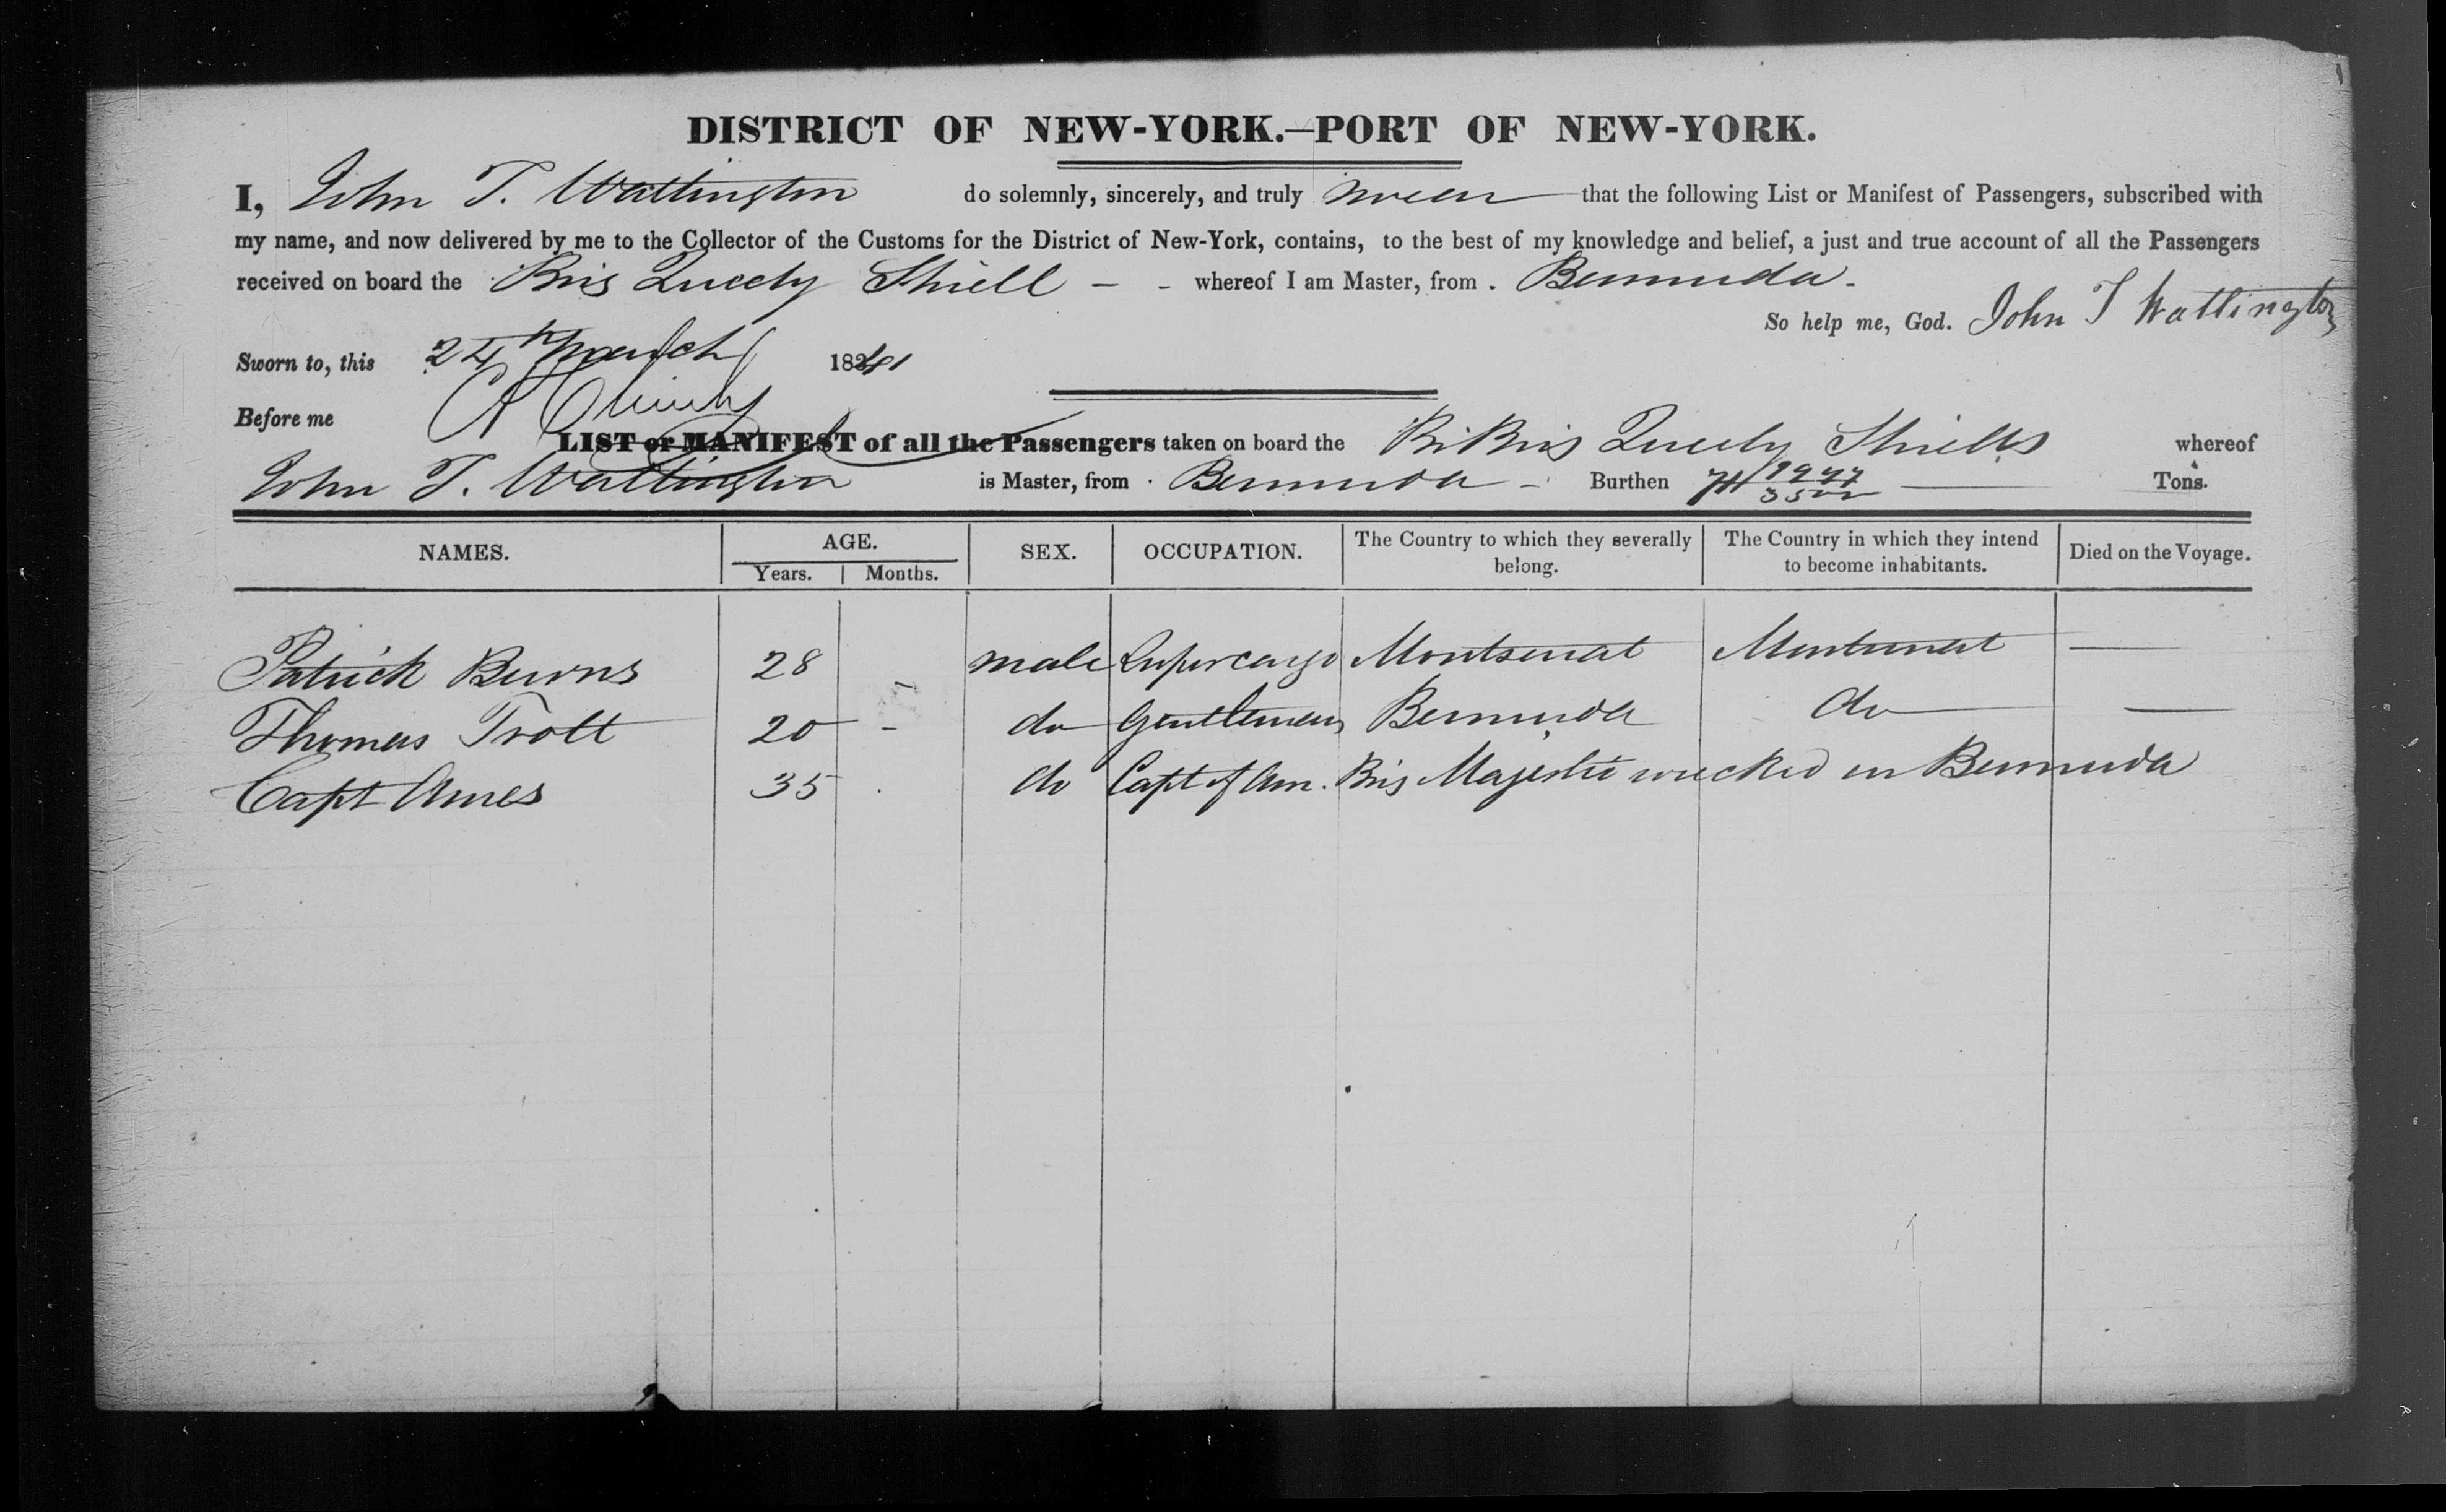 DISTRICT OF NEW-YORK.—PORT OF NEW-YORK.
I, John T. Wattington do solemnly, sincerely, and truly swear that the following List or Manifest of Passengers, subscribed with
my name, and now delivered by me to the Collector of the Customs for the District of New-York, contains, to the best of my knowledge and belief, a just and true account of all the Passengers
received on board the Brig Shiell - - whereof I am Master, from Bermuda -
So help me, God. John T Watlington
Sworn to, this 24th March 1841
Before me
LIST or MANIFEST of all the Passengers taken on board the Br Brig Shiells whereof
John T. Wattington is Master, from Bermuda - Burthen Tons.
NAMES. AGE. SEX. OCCUPATION. The Country to which they severally belong. The Country in which they intend to become inhabitants. Died on the Voyage.
Years. Months.
Patrick Burns 28 - male Supercargo Montserat Montserat —
Thomas Trott 20 - do Gentleman Bermuda do —
Capt Ames 35 do Capt of Am. Brig Majestic wrecked in Bermuda